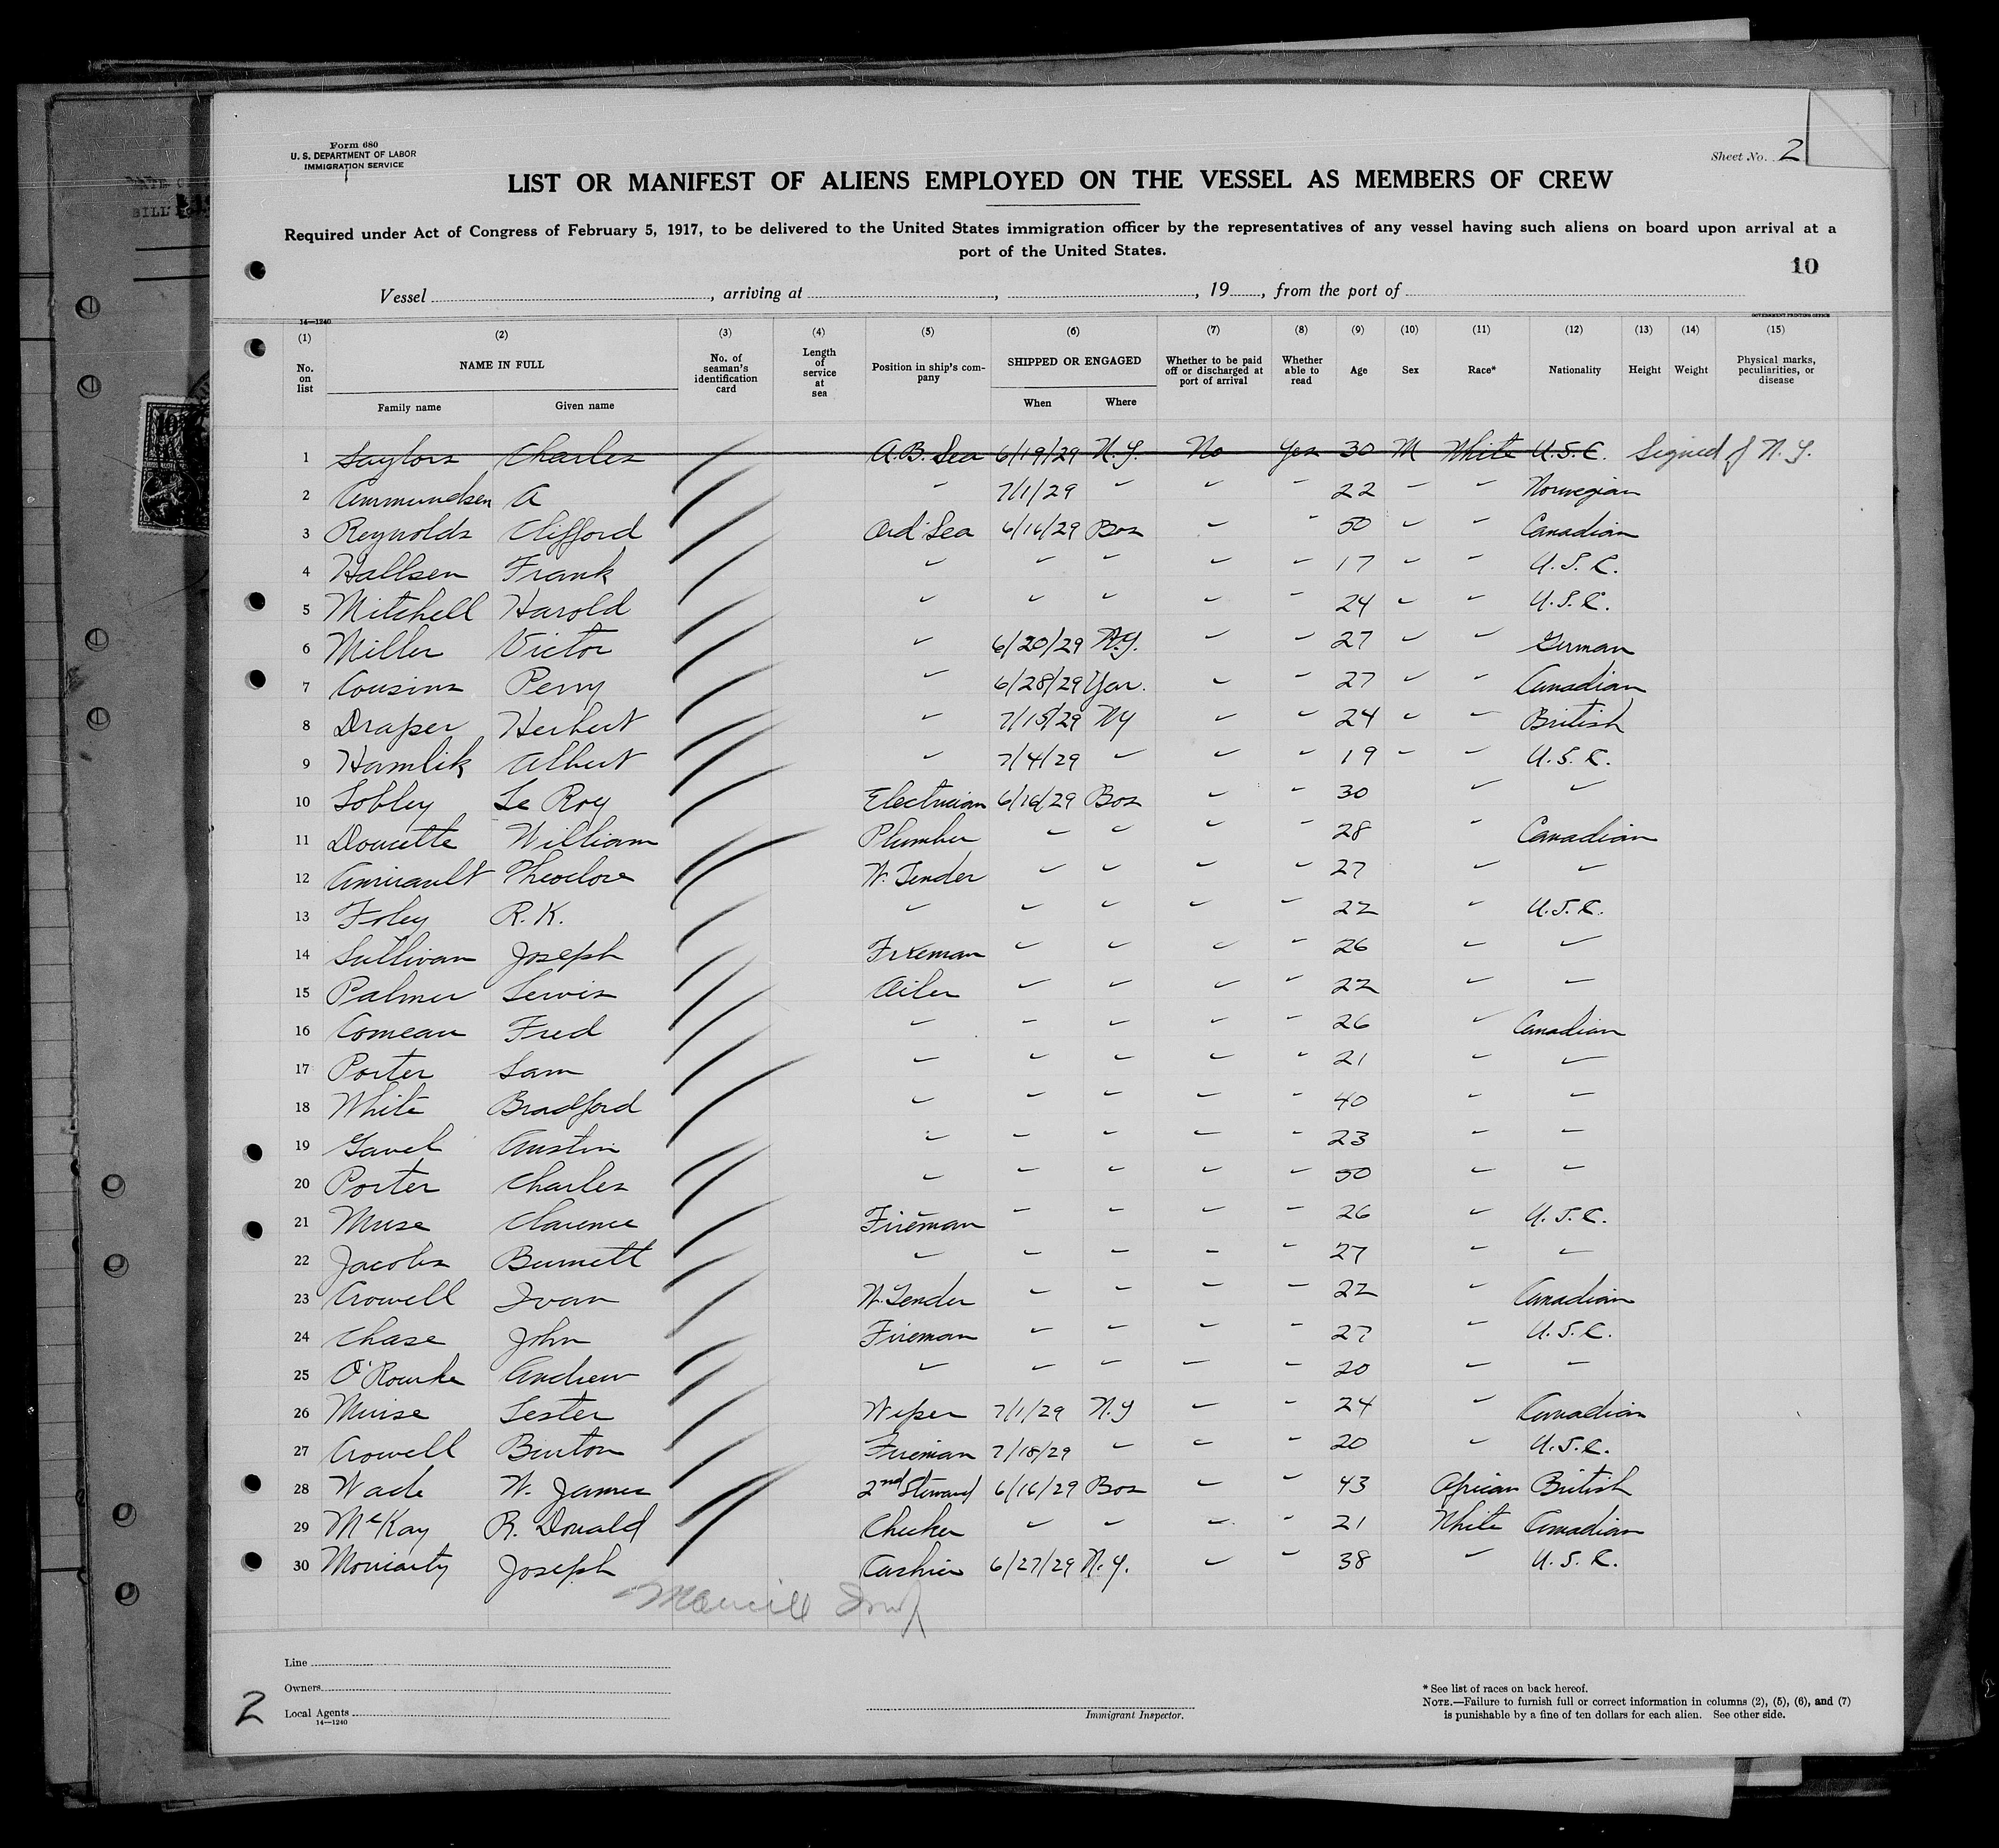 Form 680
U. S. DEPARTMENT OF LABOR
IMMIGRATION SERVICE
Sheet No. 2
LIST OR MANIFEST OF ALIENS EMPLOYED ON THE VESSEL AS MEMBERS OF CREW
Required under Act of Congress of February 5, 1917, to be delivered to the United States immigration officer by the representatives of any vessel having such aliens on board upon arrival at a
port of the United States.
10
Vessel , arriving at , , 19 , from the port of
14—1240 GOVERNMENT PRINTING OFFICE
(1) (2) (3) (4) (5) (6) (7) (8) (9) (10) (11) (12) (13) (14) (15)
No. on list NAME IN FULL Family name Given name No. of seaman's identification card Length of service at sea Position in ship's company SHIPPED OR ENGAGED When Where Whether to be paid off or discharged at port of arrival Whether able to read Age Sex Race* Nationality Height Weight Physical marks, peculiarities, or disease
1 Saylors Charles A.B. Sea 6/19/29 N.Y. No Yes 30 M White U.S.C. Signed N.Y.
2 Ammundsen A " 7/1/29 " " " 22 " " Norwegian
3 Reynolds Clifford Ord Sea 6/16/29 Bos " " 50 " " Canadian
4 Hallsen Frank " " " " " 17 " " U.S.C.
5 Mitchell Harold " " " " " 24 " " U.S.C.
6 Miller Victor " 6/20/29 N.Y. " " 27 " " German
7 Cousins Perry " 6/28/29 Yar. " " 27 " " Canadian
8 Draper Herbert " 7/15/29 NY " " 24 " " British
9 Hamlik Albert " 7/4/29 " " " 19 " " U.S.C.
10 Sobley Le Roy Electrician 6/16/29 Bos " " 30 " "
11 Doucette William Plumber " " " " 28 " Canadian
12 Amirault Theodore W. Tender " " " " 27 " "
13 Foley R. K. " " " " " 22 " U.S.C.
14 Sullivan Joseph Fireman " " " " 26 " "
15 Palmer Lewis Oiler " " " " 22 " "
16 Comeau Fred " " " " " 26 " Canadian
17 Porter Sam " " " " " 21 " "
18 White Bradford " " " " " 40 " "
19 Gavel Austin " " " " " 23 " "
20 Porter Charles " " " " " 50 " "
21 Muse Clarence Fireman " " " " 26 " U.S.C.
22 Jacobs Burnett " " " " " 27 " "
23 Crowell Ivan W. Tender " " " " 22 " Canadian
24 Chase John Fireman " " " " 27 " U.S.C.
25 O'Rourke Andrew " " " " " 20 " "
26 Muise Lester Wiper 7/1/29 N.Y " " 24 " Canadian
27 Crowell Burton Fireman 7/18/29 " " " 20 " U.S.C.
28 Wade W. James 2nd Steward 6/16/29 Bos " " 43 African British
29 McKay R. Donald Checker " " " " 21 White Canadian
30 Moriarty Joseph Cashier 6/27/29 N.Y. " " 38 " U.S.C.
Line
Owners
Local Agents
14—1240
2
Immigrant Inspector.
* See list of races on back hereof.
NOTE.—Failure to furnish full or correct information in columns (2), (5), (6), and (7)
is punishable by a fine of ten dollars for each alien. See other side.